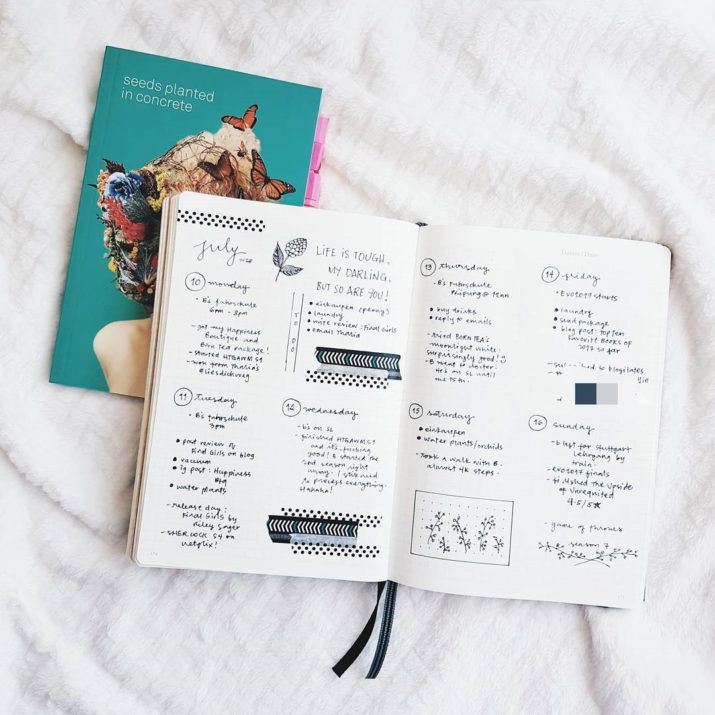 seeds planted
in concrete
July
LIFE IS TOUGH,
MY DARLING,
BUT SO ARE YOU!
TO DO
einkaufen (penny)
laundry
write review: Final Girls
email Thalia
10 monday
B's Fahrschule
6pm - 8pm
- got my Happiness
Boutique and
Born Tea package!
- started HTGAWM S1
- won from Thalia's
11 tuesday
B's Fahrschule
3pm
post review of
Final Girls on blog
vacuum
ig post: Happiness
Btq
water plants
- release day:
Final Girls by
Riley Sager
- SHERLOCK S4 on
Netflix!
12 wednesday
- B's on SL
- finished HTGAWM S1
and it's fucking
good! & started the
2nd season right
away. I still need
to process everything.
Hahaha!
13 thursday
- B's Fahrschule
Freiburg @
buy drinks
reply to emails
- tried BORN TEA's
moonlight white:
surprisingly good!
- B went to doctor.
He's on SL until
the 15th.
14 friday
EVO2017 starts
laundry
seed package
blog post: top ten
Favorite Books of
2017 so far
to blogilates
15 saturday
einkaufen
water plants/orchids
- Took a walk with B.
almost 4K steps.
16 sunday
- B left for Stuttgart
Lehrgang by
train.
- EVO2017 finals
- finished The Upside
of Unrequited
4.5/5★
- game of thrones
season 7